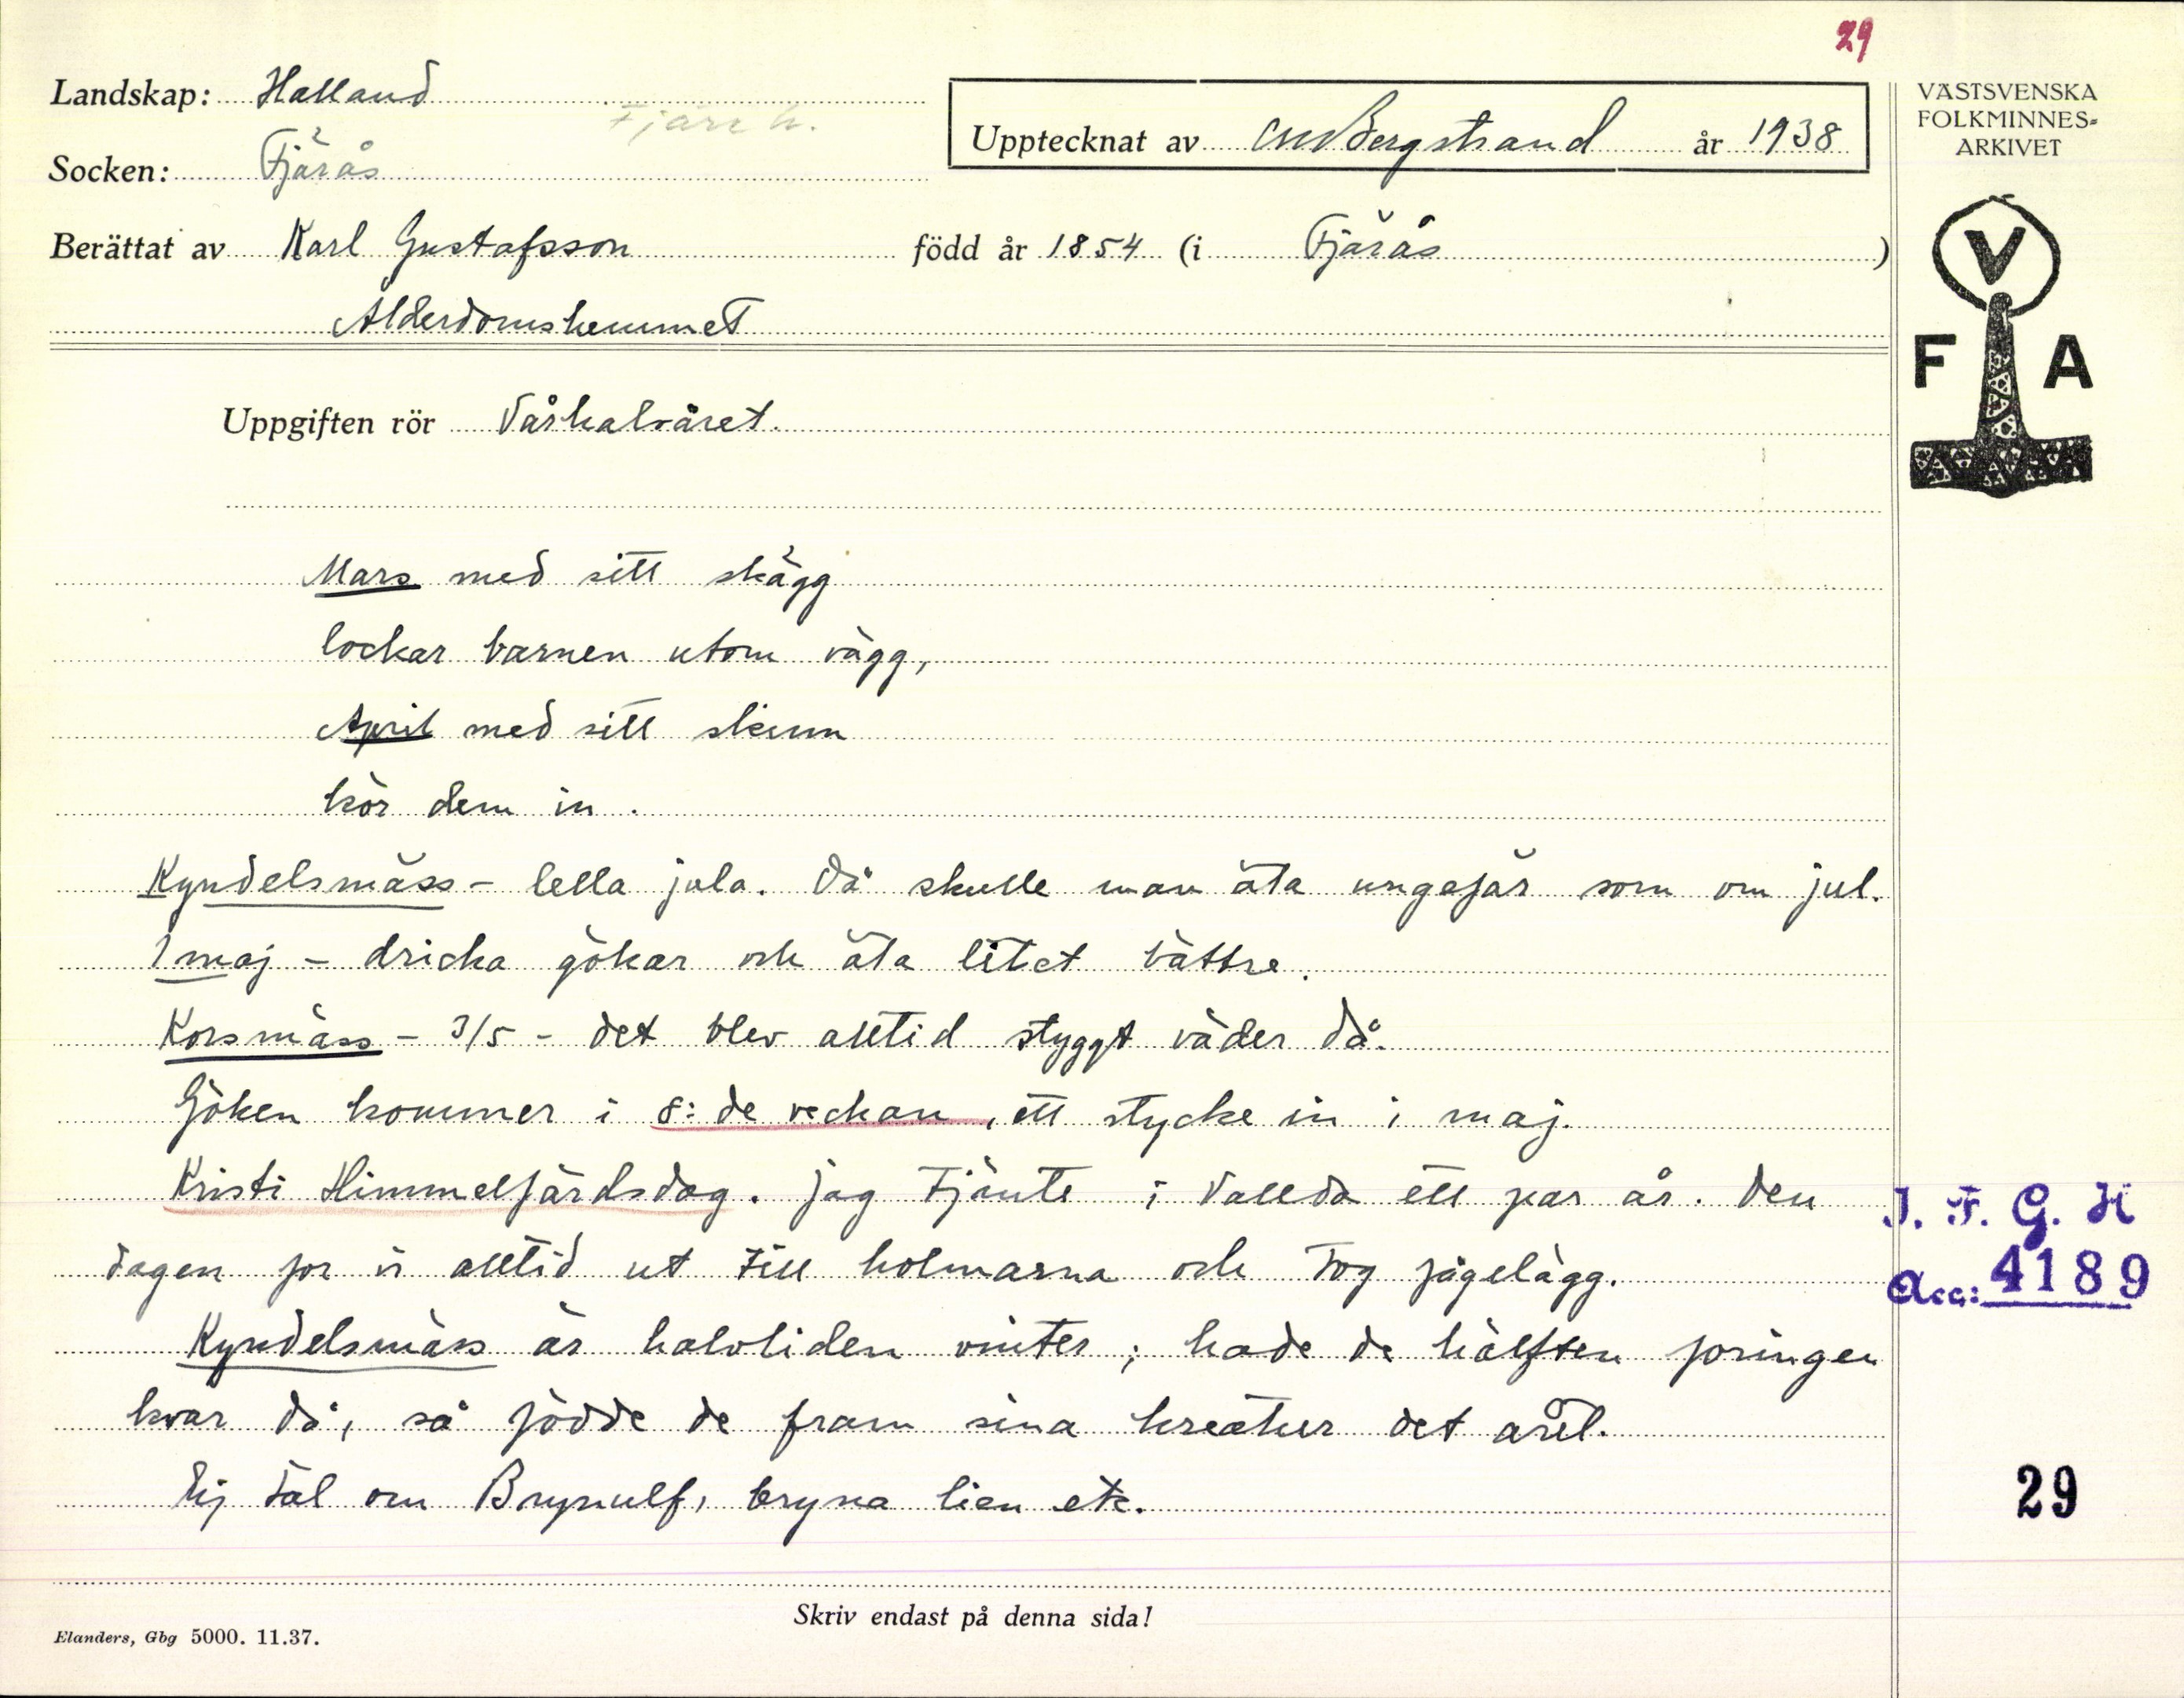 29
Landskap: Halland
Fjäre h.
Socken: Fjärås
Upptecknat av CMBergstrand år 1938
VÄSTSVENSKA
FOLKMINNES-
ARKIVET
Berättat av Karl Gustafsson född år 1854 (i Fjärås)
Ålderdomshemmet
V
F A
Uppgiften rör Vårhalvåret.
Mars med sitt skägg
lockar barnen utom vägg,
April med sitt skinn
kör dem in.
Kyndelsmäss - lella jula. Då skulle man äta ungefär som om jul.
1 maj - dricka gökar och äta litet bättre.
Korsmäss - 3/5 - det blev alltid styggt väder då.
Göken kommer i 8:de veckan, ett stycke in i maj.
Kristi Himmelfärdsdag. Jag tjänte i Vallda ett par år. Den
dagen for vi alltid ut till holmarna och tog fågelägg.
Kyndelsmäss är halvliden vinter; hade de hälften foringen
kvar då, så födde de fram sina kreatur det året.
Ej tal om Brynulf, bryna lien etc.
I. F. G. H
Acc: 4189
29
Skriv endast på denna sida!
Elanders, Gbg 5000. 11.37.